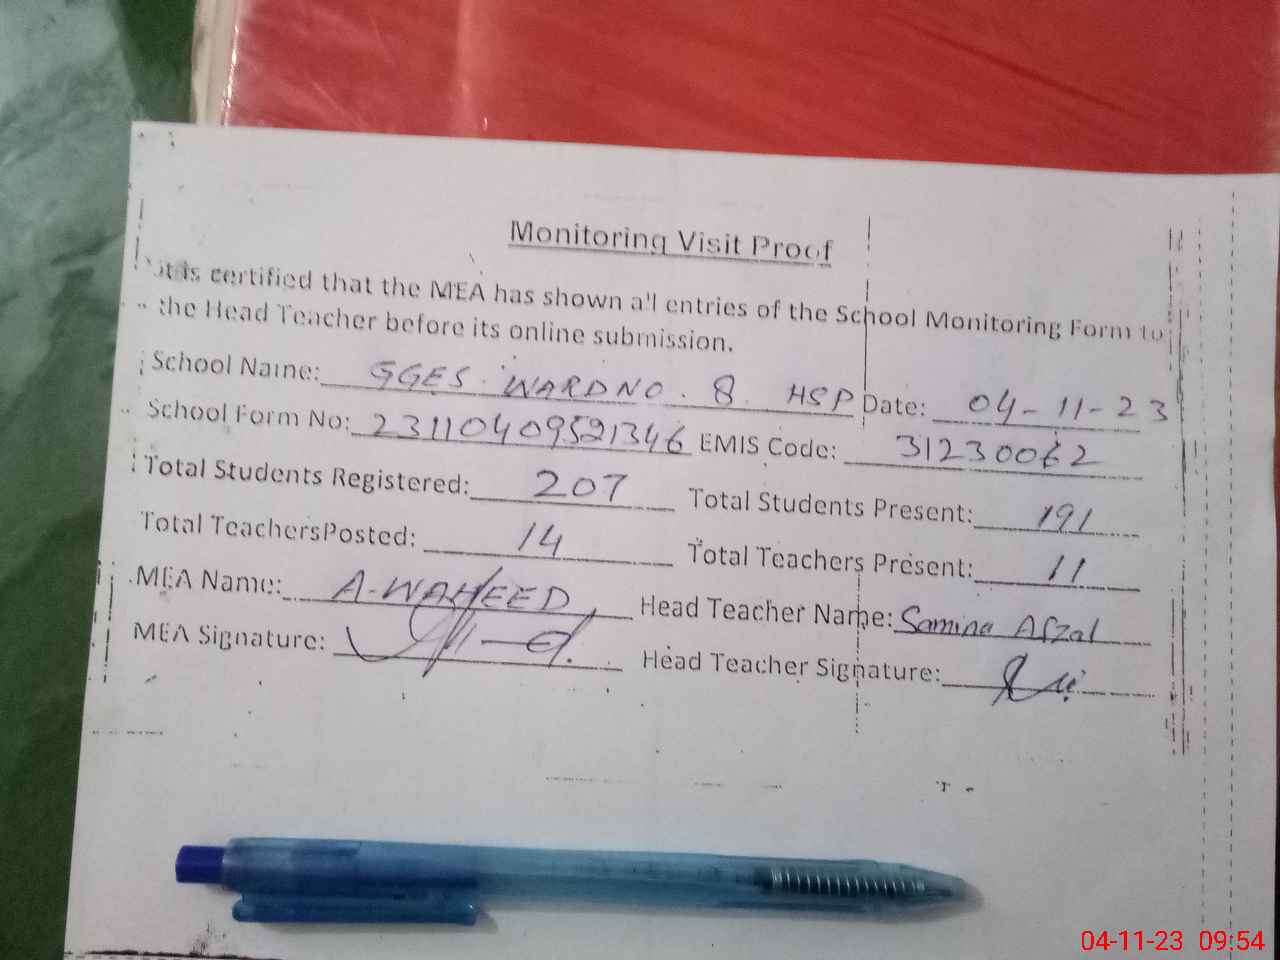 Monitoring Visit Proof
it is certified that the MEA has shown all entries of the School Monitoring Form to
the Head Teacher before its online submission.
School Name: GGES. WARD NO. 8. HSP Date: 04-11-23
School Form No: 23110409521346 EMIS Code: 31230062
Total Students Registered: 207 Total Students Present: 191
Total TeachersPosted: 14 Total Teachers Present: 11
MEA Name: A-WAHEED Head Teacher Name: Samina Afzal
MEA Signature: Head Teacher Signature:
04-11-23 09:54